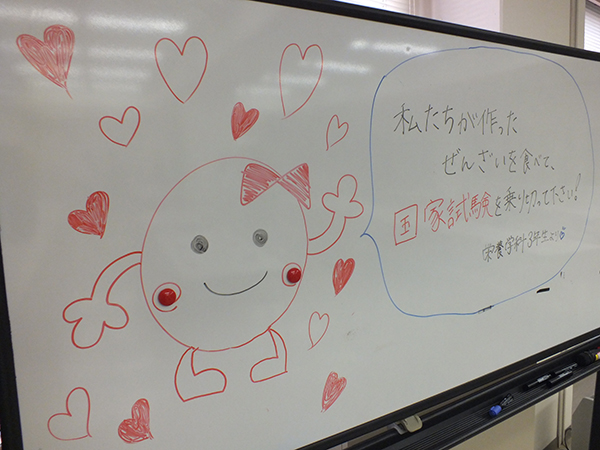 私たちが作った
ぜんざいを食べて、
国家試験を乗り切ってださい!
栄養学科3年生より